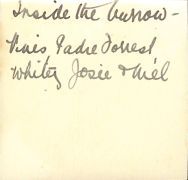 Inside the burrow -
Padre Forrest
Whitey Josie & Mel